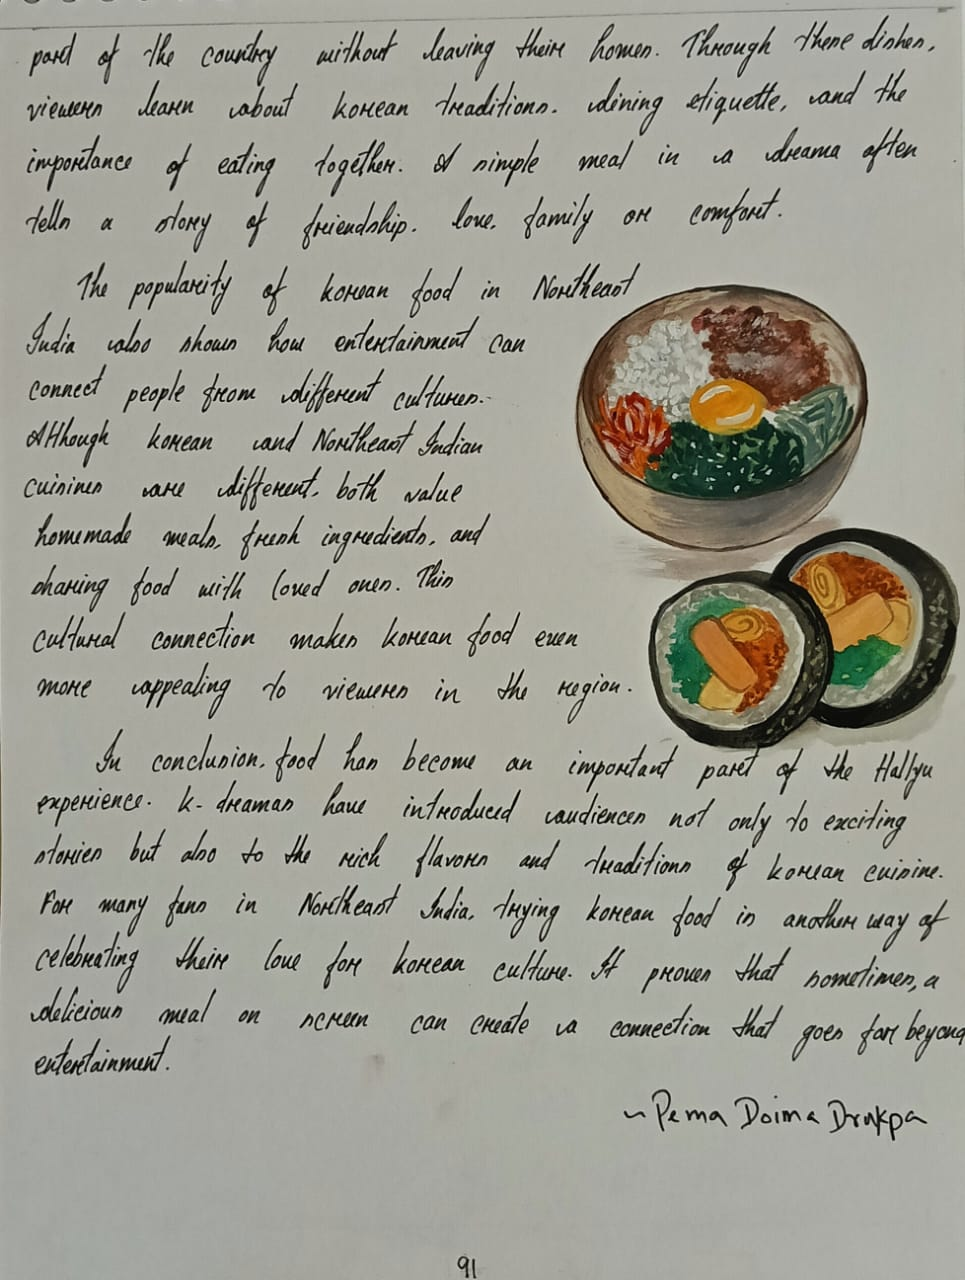 part of the country without leaving their homes. Through these dishes,
viewers learn about korean traditions. dining etiquette, and the
importance of eating together. A simple meal in a drama often
tells a story of friendship. love. family or comfort.
The popularity of korean food in Northeast
India also shows how entertainment can
connect people from different cultures.
Although korean and Northeast Indian
cuisines are different. both value
homemade meals, fresh ingredients, and
sharing food with loved ones. This
cultural connection makes korean food even
more appealing to viewers in the region.
In conclusion. food has become an important part of the Hallyu
experience. K-dramas have introduced audiences not only to exciting
stories but also to the rich flavors and traditions of korean cuisine.
For many fans in Northeast India, trying korean food is another way of
celebrating their love for korean culture. It proves that sometimes, a
delicious meal on screen can create a connection that goes far beyond
entertainment.
~ Pema Doima Drukpa
91